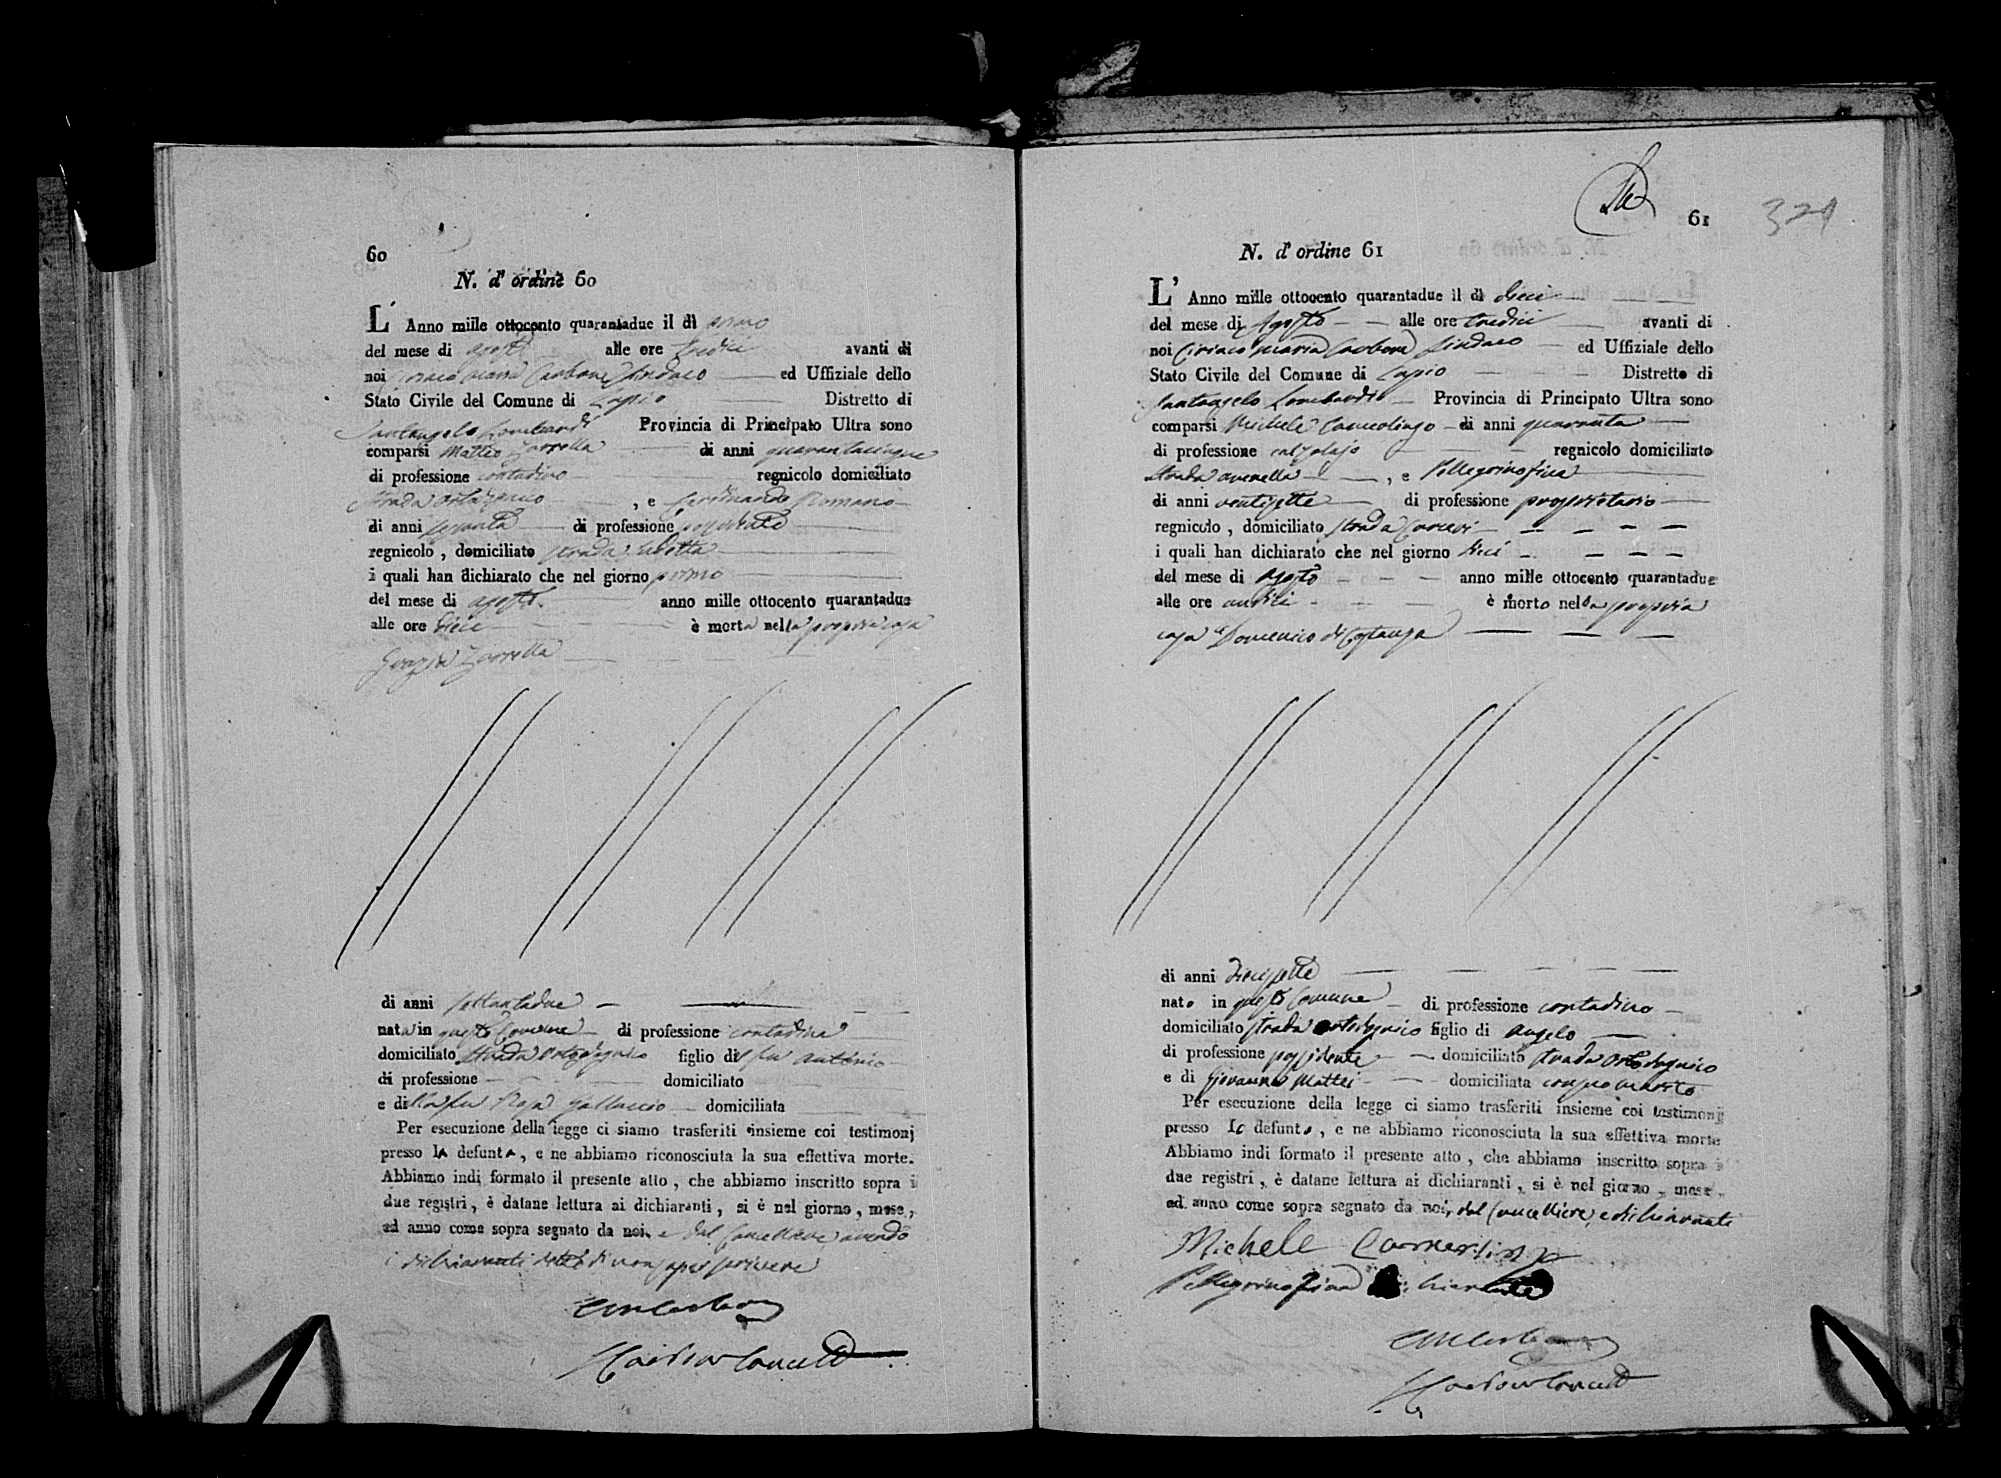 60
N. d'ordine 60
L' Anno mille ottocento quarantadue il dì primo
del mese di agosto alle ore tredici avanti di
noi Ciriaco Maria Carbone Sindaco ed Uffiziale dello
Stato Civile del Comune di Lapio Distretto di
Santangelo Lombardi Provincia di Principato Ultra sono
comparsi Matteo Zarrella di anni quarantacinque
di professione contadino regnicolo domiciliato
strada , e Ferdinando Romano
di anni sessanta di professione possidente
regnicolo , domiciliato strada
i quali han dichiarato che nel giorno primo
del mese di agosto anno mille ottocento quarantadue
alle ore dieci è morta nella propria casa
Grazia Zarrella
di anni settantadue
nata in questo Comune di professione contadina
domiciliato strada figlio di fu Antonio
di professione domiciliato
e di fu Rosa Galluccio domiciliata
Per esecuzione della legge ci siamo trasferiti insieme coi testimonj
presso la defunta, e ne abbiamo riconosciuta la sua effettiva morte.
Abbiamo indi formato il presente atto , che abbiamo inscritto sopra i
due registri, è datane lettura ai dichiaranti, si è nel giorno, mese,
ed anno come sopra segnato da noi, e dal Cancelliere avendo
i dichiaranti detto di non saper scrivere
61
321
N. d'ordine 61
L' Anno mille ottocento quarantadue il dì dieci
del mese di Agosto alle ore tredici avanti di
noi Ciriaco Maria Carbone Sindaco ed Uffiziale dello
Stato Civile del Comune di Lapio Distretto di
Santangelo Lombardi Provincia di Principato Ultra sono
comparsi Michele di anni quaranta
di professione calzolajo regnicolo domiciliato
strada , e Pellegrino
di anni ventisette di professione proprietario
regnicolo , domiciliato strada
i quali han dichiarato che nel giorno dieci
del mese di agosto anno mille ottocento quarantadue
alle ore undici è morto nella propria
casa Domenico di Costanza
di anni diecisette
nato in questo Comune di professione contadino
domiciliato strada figlio di Angelo
di professione possidente domiciliato strada
e di Giovanna Mattei domiciliata con suo marito
Per esecuzione della legge ci siamo trasferiti insieme coi testimonj
presso lo defunto, e ne abbiamo riconosciuta la sua effettiva morte
Abbiamo indi formato il presente atto , che abbiamo inscritto sopra i
due registri, è datane lettura ai dichiaranti, si è nel giorno, mese,
ed anno come sopra segnato da noi, dal Cancelliere, e dichiaranti
Michele
Pellegrino